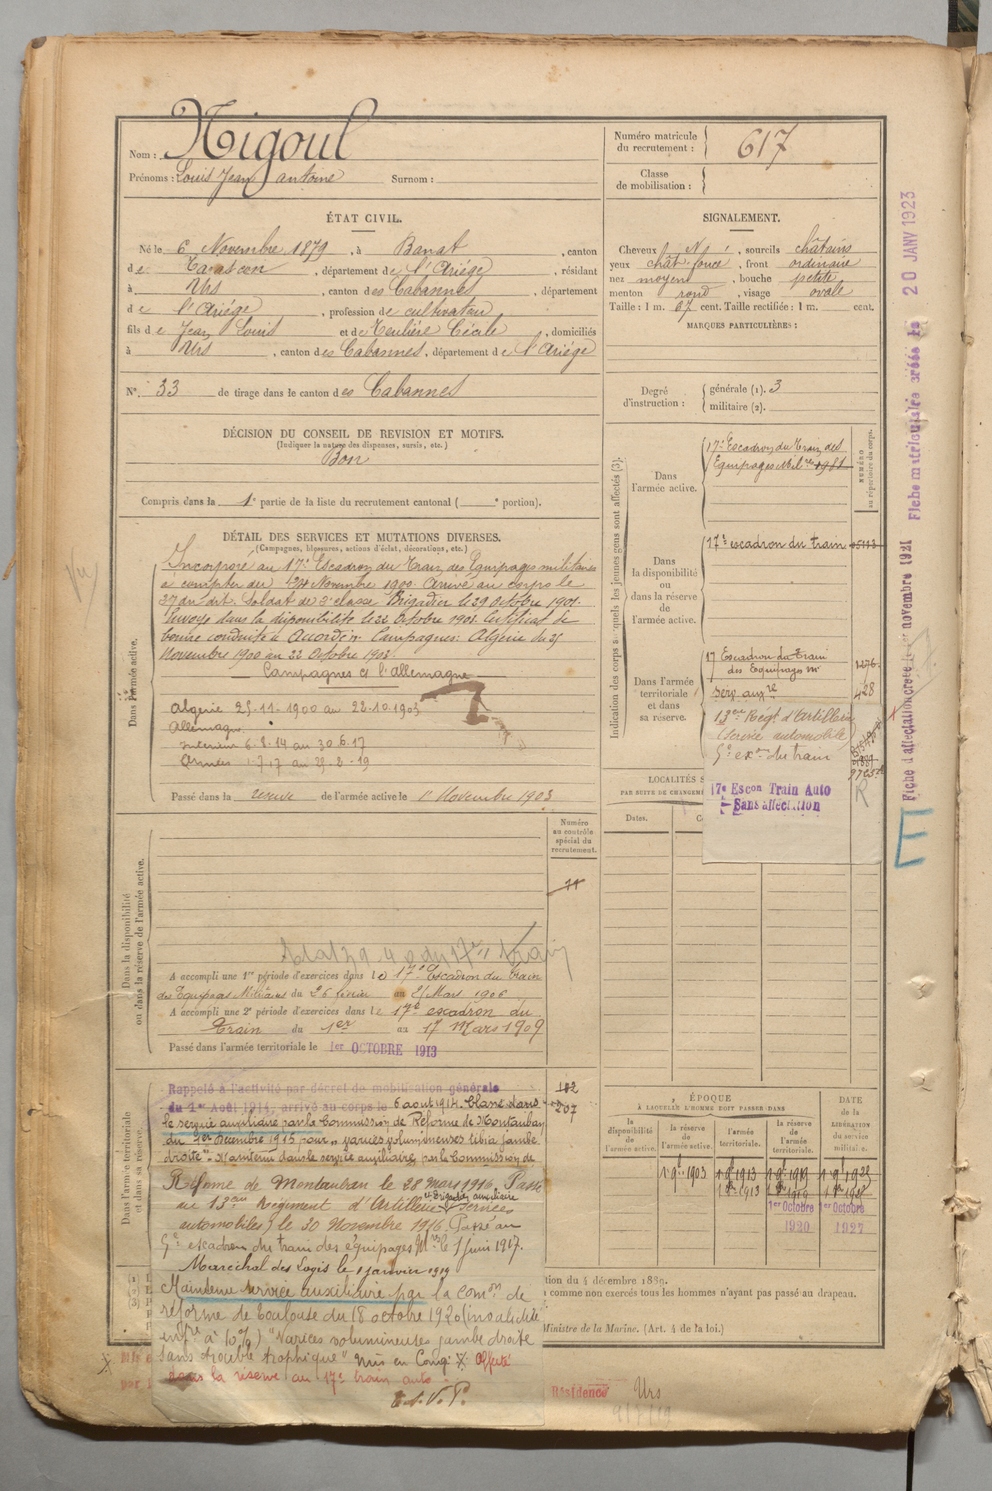 Nom : Nigoul
Prénoms : Louis Jean antoine Surnom :
Numéro matricule du recrutement : 617
Classe de mobilisation :
ÉTAT CIVIL.
Né le 6 Novembre 1879, à Banat, canton
de Tarascon, département de l'Ariége, résidant
à Urs, canton des Cabannes, département
de l'Ariége, profession de cultivateur
fils de Jean Louis et de Teulière Cécile, domiciliés
à Urs, canton des Cabannes, département de l'Ariége
N° 33 de tirage dans le canton des Cabannes
SIGNALEMENT.
Cheveux sourcils châtains
yeux chât. foncé, front ordinaire
nez moyen, bouche petite
menton rond, visage ovale
Taille : 1 m. 67 cent. Taille rectifiée : 1 m. cent.
MARQUES PARTICULIÈRES :
Degré d'instruction : générale (1). 3
militaire (2).
DÉCISION DU CONSEIL DE REVISION ET MOTIFS.
(Indiquer la nature des dispenses, sursis, etc.)
Bon
Compris dans la 1e partie de la liste du recrutement cantonal ( e portion).
DÉTAIL DES SERVICES ET MUTATIONS DIVERSES.
(Campagnes, blessures, actions d'éclat, décorations, etc.)
Dans l'armée active.
Incorporé au 17e Escadron du Train des Equipages militaires
à compter du 24 Novembre 1900. Arrivé au corps le
dit. Soldat de 2e classe Brigadier le 29 Octobre 1901.
Envoyé dans la disponibilité le 22 Octobre 1903. Certificat de
bonne conduite à Accordé. Campagnes : Algérie du 25
Novembre 1900 au 22 Octobre 1903.
Campagnes ct l'Allemagne
Algérie 25-11-1900 au 22.10.1903
Allemagne
Intérieur 6-8-14 au 30.6.17
Armées 1-7-17 au
Passé dans la réserve de l'armée active le 1er Novembre 1903
Indication des corps auxquels les jeunes gens sont affectés (3).
NUMÉRO au répertoire du corps.
Dans l'armée active.
17e Escadron du Train des
Equipages Mil.res 1981
Dans la disponibilité ou dans la réserve de l'armée active.
17e escadron du train 05113
Dans l'armée territoriale et dans sa réserve.
17 Escadron du Train
des Equipages Mres 1276
serv. auxre 428
13ème Régt d'Artillerie
(Service automobile)
5e esc.on du train
17e Escon Train Auto
Sans affectation
LOCALITÉS
PAR SUITE DE CHANGEM
Dates.
Fiche d'affectation créée le 1er novembre 1921 Fiche matriculaire créée le 20 JANV 1923
Dans la disponibilité ou dans la réserve de l'armée active.
Numéro au contrôle spécial du recrutement.
A accompli une 1re période d'exercices dans le 17e Escadron du Train
des Equipages Militaires du 26 février au 21 Mars 1906
A accompli une 2e période d'exercices dans le 17e escadron du
Train du 1er au 17 Mars 1909
Passé dans l'armée territoriale le 1er OCTOBRE 1913
Dans l'armée territoriale et dans sa réserve.
Rappelé à l'activité par décret de mobilisation générale
du 1er Août 1914, arrivé au corps le 6 aout 1914. Classé dans
le service auxiliaire par la Commission de Réforme de Montauban
du 1er Décembre 1915 pour "varices volumineuses tibia jambe
droite". Maintenu dans le service auxiliaire par la Commission de
Réforme de Montauban le 28 mars 1916. Passé
au 13ème Régiment d'Artillerie (services
et Brigadier auxiliaire
automobiles) le 30 Novembre 1916. Passé au
5e escadron du train des équipages Mres le 1 juin 1917.
Maréchal des Logis le 1 janvier 1919
Maintenu service auxiliaire par la Comon de
réforme de Toulouse du 18 octobre 1920 (invalidité
infre à 10%) "Varices volumineuses jambe droite
sans trouble trophique" Affecté
dans la réserve au 17e train auto.
T.S.V.P.
182
207
ÉPOQUE
À LAQUELLE L'HOMME DOIT PASSER DANS
la disponibilité de l'armée active.
la réserve de l'armée active.
l'armée territoriale.
la réserve de l'armée territoriale.
DATE de la LIBÉRATION du service militaire.
1er Octobre 1920
1er Octobre 1927
tion du 4 décembre 1889.
comme non exercés tous les hommes n'ayant pas passé au drapeau.
Ministre de la Marine. (Art. 4 de la loi.)
Résidence Urs